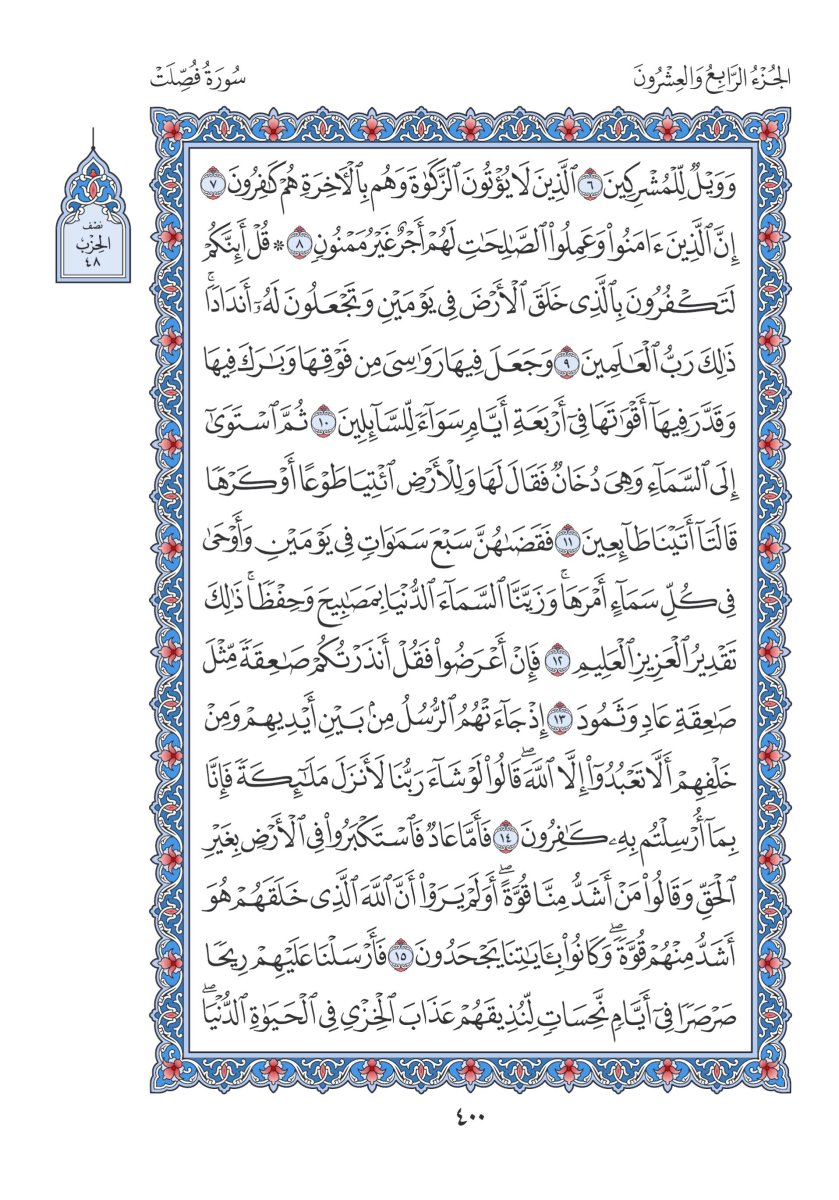 الجُزْءُ الرَّابِعُ وَالعِشْرُونَ
سُورَةُ فُصِّلَتْ
وَوَيْلٌ لِّلْمُشْرِكِينَ ٦ ٱلَّذِينَ لَا يُؤْتُونَ ٱلزَّكَوٰةَ وَهُم بِٱلْأٓخِرَةِ هُمْ كَٰفِرُونَ ٧
إِنَّ ٱلَّذِينَ ءَامَنُوا۟ وَعَمِلُوا۟ ٱلصَّٰلِحَٰتِ لَهُمْ أَجْرٌ غَيْرُ مَمْنُونٍ ٨ * قُلْ أَئِنَّكُمْ
لَتَكْفُرُونَ بِٱلَّذِى خَلَقَ ٱلْأَرْضَ فِى يَوْمَيْنِ وَتَجْعَلُونَ لَهُۥٓ أَندَادًاۚ
ذَٰلِكَ رَبُّ ٱلْعَٰلَمِينَ ٩ وَجَعَلَ فِيهَا رَوَٰسِىَ مِن فَوْقِهَا وَبَٰرَكَ فِيهَا
وَقَدَّرَ فِيهَآ أَقْوَٰتَهَا فِىٓ أَرْبَعَةِ أَيَّامٍ سَوَآءً لِّلسَّآئِلِينَ ١٠ ثُمَّ ٱسْتَوَىٰٓ
إِلَى ٱلسَّمَآءِ وَهِىَ دُخَانٌ فَقَالَ لَهَا وَلِلْأَرْضِ ٱئْتِيَا طَوْعًا أَوْ كَرْهًا
قَالَتَآ أَتَيْنَا طَآئِعِينَ ١١ فَقَضَىٰهُنَّ سَبْعَ سَمَٰوَاتٍ فِى يَوْمَيْنِ وَأَوْحَىٰ
فِى كُلِّ سَمَآءٍ أَمْرَهَاۚ وَزَيَّنَّا ٱلسَّمَآءَ ٱلدُّنْيَا بِمَصَٰبِيحَ وَحِفْظًاۚ ذَٰلِكَ
تَقْدِيرُ ٱلْعَزِيزِ ٱلْعَلِيمِ ١٢ فَإِنْ أَعْرَضُوا۟ فَقُلْ أَنذَرْتُكُمْ صَٰعِقَةً مِّثْلَ
صَٰعِقَةِ عَادٍ وَثَمُودَ ١٣ إِذْ جَآءَتْهُمُ ٱلرُّسُلُ مِنۢ بَيْنِ أَيْدِيهِمْ وَمِنْ
خَلْفِهِمْ أَلَّا تَعْبُدُوٓا۟ إِلَّا ٱللَّهَۖ قَالُوا۟ لَوْ شَآءَ رَبُّنَا لَأَنزَلَ مَلَٰٓئِكَةً فَإِنَّا
بِمَآ أُرْسِلْتُم بِهِۦ كَٰفِرُونَ ١٤ فَأَمَّا عَادٌ فَٱسْتَكْبَرُوا۟ فِى ٱلْأَرْضِ بِغَيْرِ
ٱلْحَقِّ وَقَالُوا۟ مَنْ أَشَدُّ مِنَّا قُوَّةًۖ أَوَلَمْ يَرَوْا۟ أَنَّ ٱللَّهَ ٱلَّذِى خَلَقَهُمْ هُوَ
أَشَدُّ مِنْهُمْ قُوَّةًۖ وَكَانُوا۟ بِـَٔايَٰتِنَا يَجْحَدُونَ ١٥ فَأَرْسَلْنَا عَلَيْهِمْ رِيحًا
صَرْصَرًا فِىٓ أَيَّامٍ نَّحِسَاتٍ لِّنُذِيقَهُمْ عَذَابَ ٱلْخِزْىِ فِى ٱلْحَيَوٰةِ ٱلدُّنْيَاۖ
نصف
الحزب
٤٨
٤٠٠